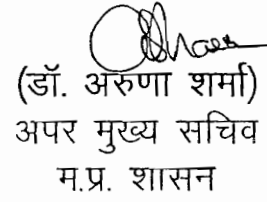 (डॉ. अरुणा शर्मा)
अपर मुख्य सचिव
म.प्र. शासन